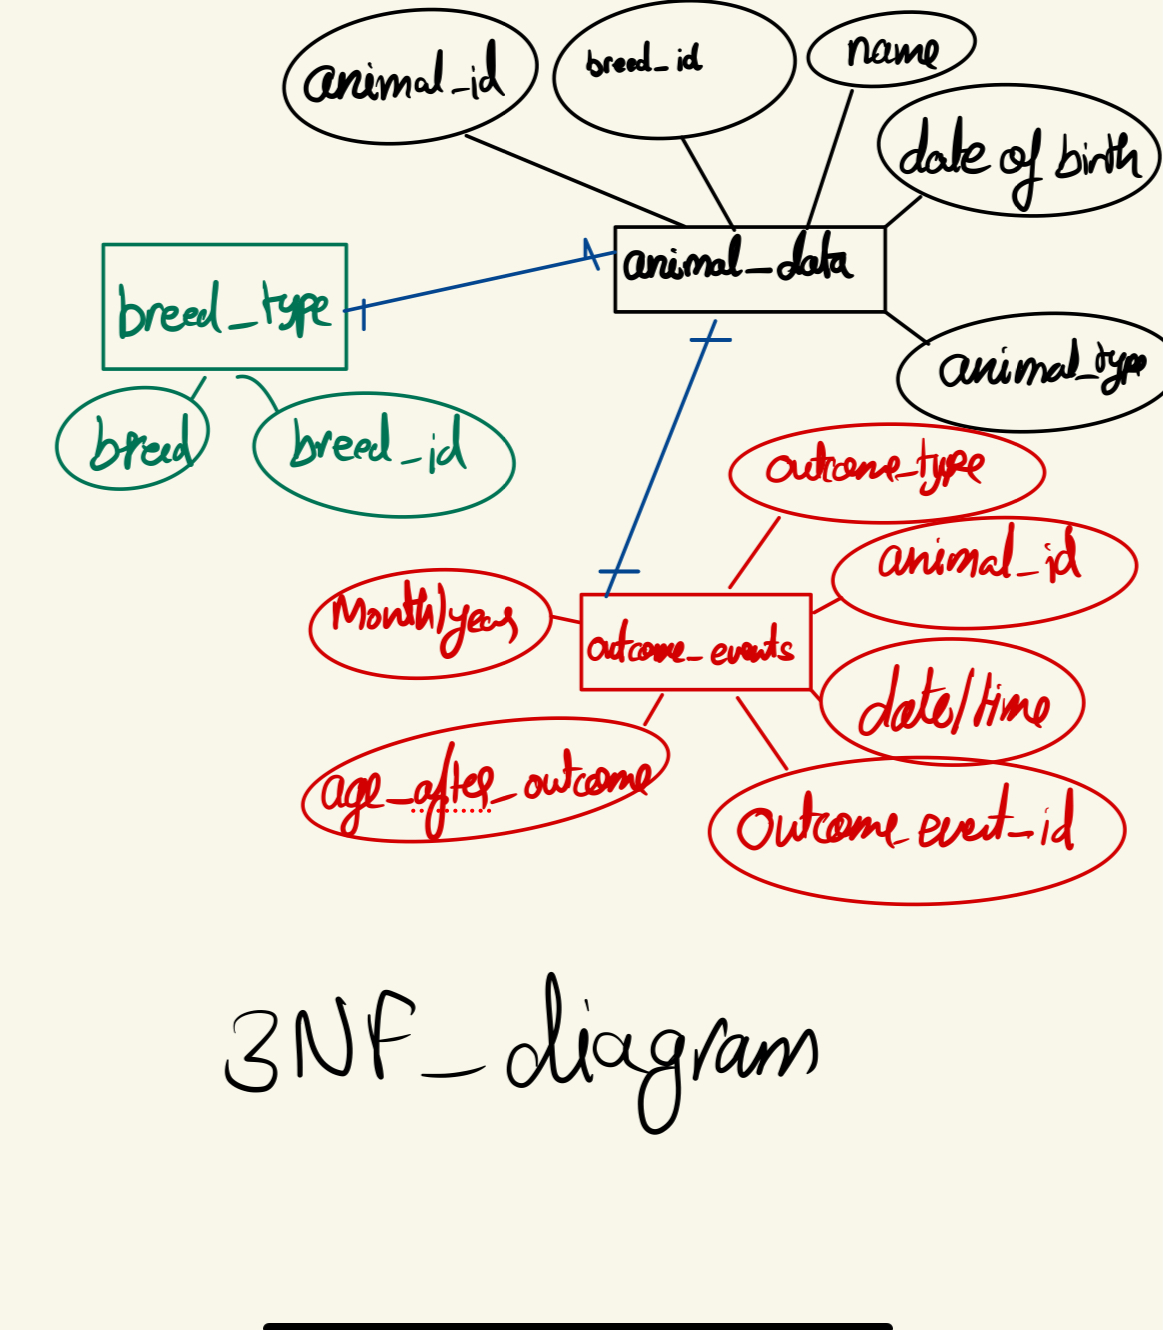 animal_id
breed_id
name
date of birth
animal_data
breed_type
animal_type
breed
breed_id
outcome_type
animal_id
Month/year
outcome_events
date/time
age_after_outcome
outcome_event_id
3NF_diagram